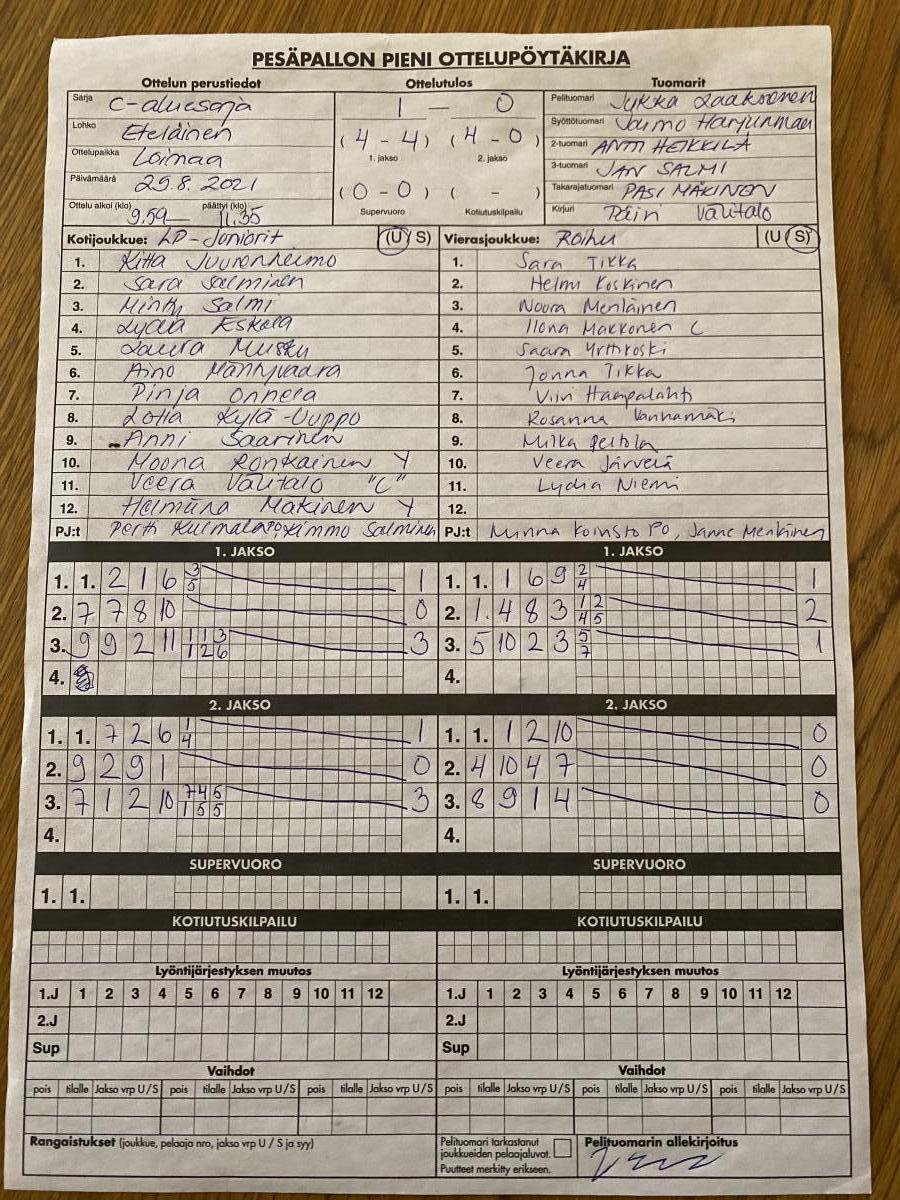 PESÄPALLON PIENI OTTELUPÖYTÄKIRJA
Ottelun perustiedot Ottelutulos Tuomarit
Sarja C-aluesarja 1 — 0 Pelituomari Jukka Laaksonen
Lohko Eteläinen (4 - 4) (4 - 0) Syöttötuomari Jarmo Harjunmaa
1. jakso 2. jakso
Ottelupaikka Loimaa 2-tuomari ANTTI HEIKKILÄ
3-tuomari JAN SALMI
Päivämäärä 29.8. 2021 (0 - 0) ( - ) Takarajatuomari PASI MÄKINEN
Ottelu alkoi (klo) 9.59 — päättyi (klo) 11.35 Supervuoro Kotiutuskilpailu Kirjuri Päivi Välitalo
Kotijoukkue: LP-Juniorit (U/S) Vierasjoukkue: Roihu (U/S)
1. Riita Juurenheimo 1. Sara Tikka
2. Sara Salminen 2. Helmi Koskinen
3. Minttu Salmi 3. Noora Menläinen
4. Lydia Eskola 4. Ilona Makkonen C
5. Laura Musku 5. Saara Yrttikoski
6. Aino Mäntyvaara 6. Jonna Tikka
7. Pinja Onnela 7. Viivi Haapalahti
8. Lotta Kylä-Uuppo 8. Rosanna Vanhamäki
9. Anni Saarinen 9. Milka Peltola
10. Moona Ronkainen Y 10. Veera Järvelä
11. Veera Välitalo "C" 11. Lydia Niemi
12. Helmiina Mäkinen Y 12.
PJ:t Pertti Kulmala PO, Kimmo Salminen PJ:t Minna Koivisto PO, Janne Menkinen
1. JAKSO 1. JAKSO
1. 1. 2 1 6 3 5 1 1. 1. 1 6 9 2 4 1
2. 7 7 8 10 0 2. 1. 4 8 3 1 2 4 5 2
3. 9 9 2 11 1 1 3 1 2 6 3 3. 5 10 2 3 5 7 1
4. 4.
2. JAKSO 2. JAKSO
1. 1. 7 2 6 1 4 1 1. 1. 1 2 10 0
2. 9 2 9 1 0 2. 4 10 4 7 0
3. 7 1 2 10 7 4 5 1 5 5 3 3. 8 9 1 4 0
4. 4.
SUPERVUORO SUPERVUORO
1. 1. 1. 1.
KOTIUTUSKILPAILU KOTIUTUSKILPAILU
Lyöntijärjestyksen muutos Lyöntijärjestyksen muutos
1.J 1 2 3 4 5 6 7 8 9 10 11 12 1.J 1 2 3 4 5 6 7 8 9 10 11 12
2.J 2.J
Sup Sup
Vaihdot Vaihdot
pois tilalle Jakso vrp U/S pois tilalle Jakso vrp U/S pois tilalle Jakso vrp U/S pois tilalle Jakso vrp U/S pois tilalle Jakso vrp U/S pois tilalle Jakso vrp U/S
Rangaistukset (joukkue, pelaaja nro, jakso vrp U / S ja syy) Pelituomari tarkastanut Pelituomarin allekirjoitus
joukkueiden pelaajaluvat.
Puutteet merkitty erikseen.